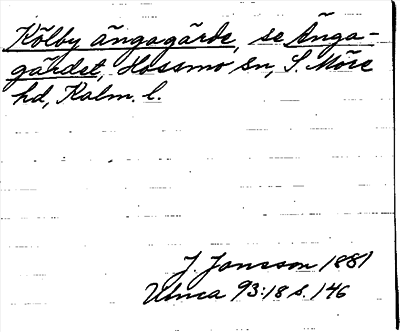 Kölby ängagärde, se Änga-
gärdet, Hossmo sn, S. Möre
hd, Kalm. l.
J. Jonsson 1881
Utnca 93:18 s. 146